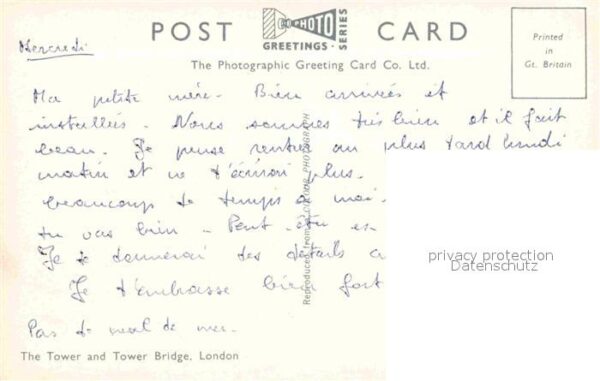 POST CARD
PHOTO
GREETINGS · SERIES
The Photographic Greeting Card Co. Ltd.
Printed
in
Gt. Britain
Mercredi
Ma petite mère. Bien arrivées et
installées. Nous sommes très bien et il fait
beau. Je pense rentrer au plus tard lundi
matin et ne t'écrirai plus.
beaucoup de temps à moi.
tu vas bien. Peut-être
Je te donnerai des détails
Je t'embrasse bien fort
Pas de mal de mer.
Reproduced from a COLOUR PHOTOGRAPH
The Tower and Tower Bridge, London
privacy protection
Datenschutz